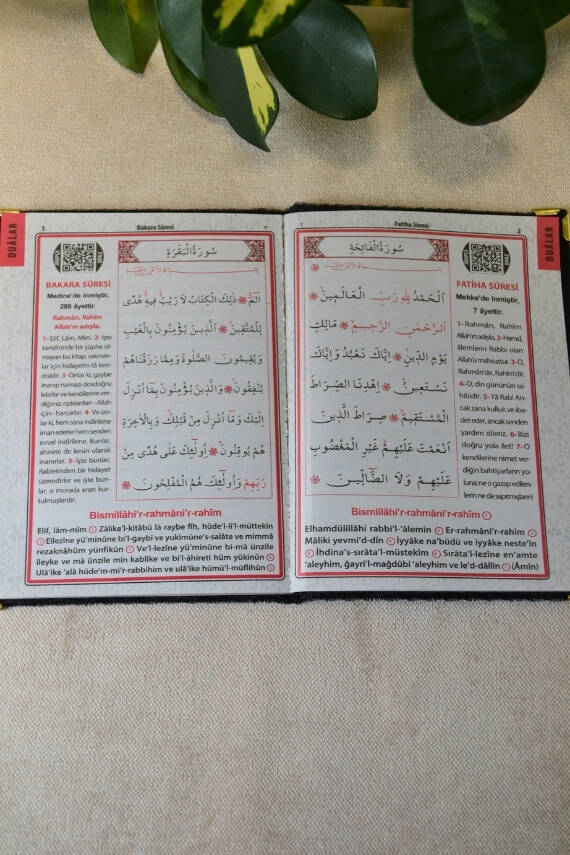 DUÂLAR
Fatiha Sûresi
2
سُورَةُ الْفَاتِحَةِ
اَلْحَمْدُ لِلّٰهِ رَبِّ الْعَالَمِينَ
اَلرَّحْمٰنِ الرَّحِيمِ مَالِكِ
يَوْمِ الدِّينِ اِيَّاكَ نَعْبُدُ وَاِيَّاكَ
نَسْتَعِينُ اِهْدِنَا الصِّرَاطَ
الْمُسْتَقِيمَ صِرَاطَ الَّذِينَ
اَنْعَمْتَ عَلَيْهِمْ غَيْرِ الْمَغْضُوبِ
عَلَيْهِمْ وَلَا الضَّالِّينَ
FATİHA SÛRESİ
Mekke'de inmiştir,
7 âyettir.
1- Rahmân, Rahîm
Allah'ın adıyla. 2- Hamd,
âlemlerin Rabbi olan
Allah'a mahsustur. 3- O,
Rahmân'dır, Rahîm'dir.
4- O, din gününün sa-
hibidir. 5- Yâ Rab! An-
cak sana kulluk ve iba-
det eder, ancak senden
yardım dileriz. 6- Bizi
doğru yola ilet! 7- O
kendilerine nimet ver-
diğin bahtiyarların yo-
luna; ne o gazap edilen-
lerin ne de sapıtmışların!
Bismillâhi'r-rahmâni'r-rahîm
Elhamdülillâhi rabbi'l-'âlemîn Er-rahmâni'r-rahîm
Mâliki yevmi'd-dîn İyyâke na'büdü ve iyyâke neste'în
İhdina's-sırâta'l-müstekîm Sırâta'l-lezîne en'amte
'aleyhim, ğayri'l-mağdûbi 'aleyhim ve le'd-dâllîn (Âmin)
DUÂLAR
3
Bakara Sûresi
سُورَةُ الْبَقَرَةِ
الٓمٓ ذٰلِكَ الْكِتَابُ لَا رَيْبَ فِيهِ هُدًى
لِلْمُتَّقِينَ اَلَّذِينَ يُؤْمِنُونَ بِالْغَيْبِ
وَيُقِيمُونَ الصَّلٰوةَ وَمِمَّا رَزَقْنَاهُمْ
يُنْفِقُونَ وَالَّذِينَ يُؤْمِنُونَ بِمَا اُنْزِلَ
اِلَيْكَ وَمَا اُنْزِلَ مِنْ قَبْلِكَ وَبِالْاٰخِرَةِ
هُمْ يُوقِنُونَ اُولٰئِكَ عَلٰى هُدًى مِنْ
رَبِّهِمْ وَاُولٰئِكَ هُمُ الْمُفْلِحُونَ
BAKARA SÛRESİ
Medine'de inmiştir,
286 âyettir.
Rahmân, Rahîm
Allah'ın adıyla.
1- Elif, Lâm, Mîm. 2- İşte
kendisinde bir şüphe ol-
mayan bu kitap; sakınan-
lar için hidayetin tâ ken-
disidir. 3- Onlar ki, gaybe
inanıp namazı dosdoğru
kılarlar ve kendilerine ver-
diğimiz rızıklardan –Allah
için– harcarlar. 4- Ve on-
lar ki, hem sana indirilene
iman ederler hem senden
evvel indirilene. Bunlar,
ahirete de kesin olarak
inanırlar. 5- İşte bunlar,
Rablerinden bir hidayet
üzeredirler ve işte bun-
lar, o murada eren kur-
tulmuşlardır.
Bismillâhi'r-rahmâni'r-rahîm
Elif, lâm-mîm Zâlike'l-kitâbü lâ raybe fîh, hüde'l-li'l-müttekîn
Ellezîne yü'minûne bi'l-ğaybi ve yukîmûne's-salâte ve mimmâ
rezaknâhüm yünfikûn Ve'l-lezîne yü'minûne bi-mâ ünzile
ileyke ve mâ ünzile min kablike ve bi'l-âhireti hüm yûkinûn
Ulâ'ike 'alâ hüde'm-mi'r-rabbihim ve ulâ'ike hümü'l-müflihûn